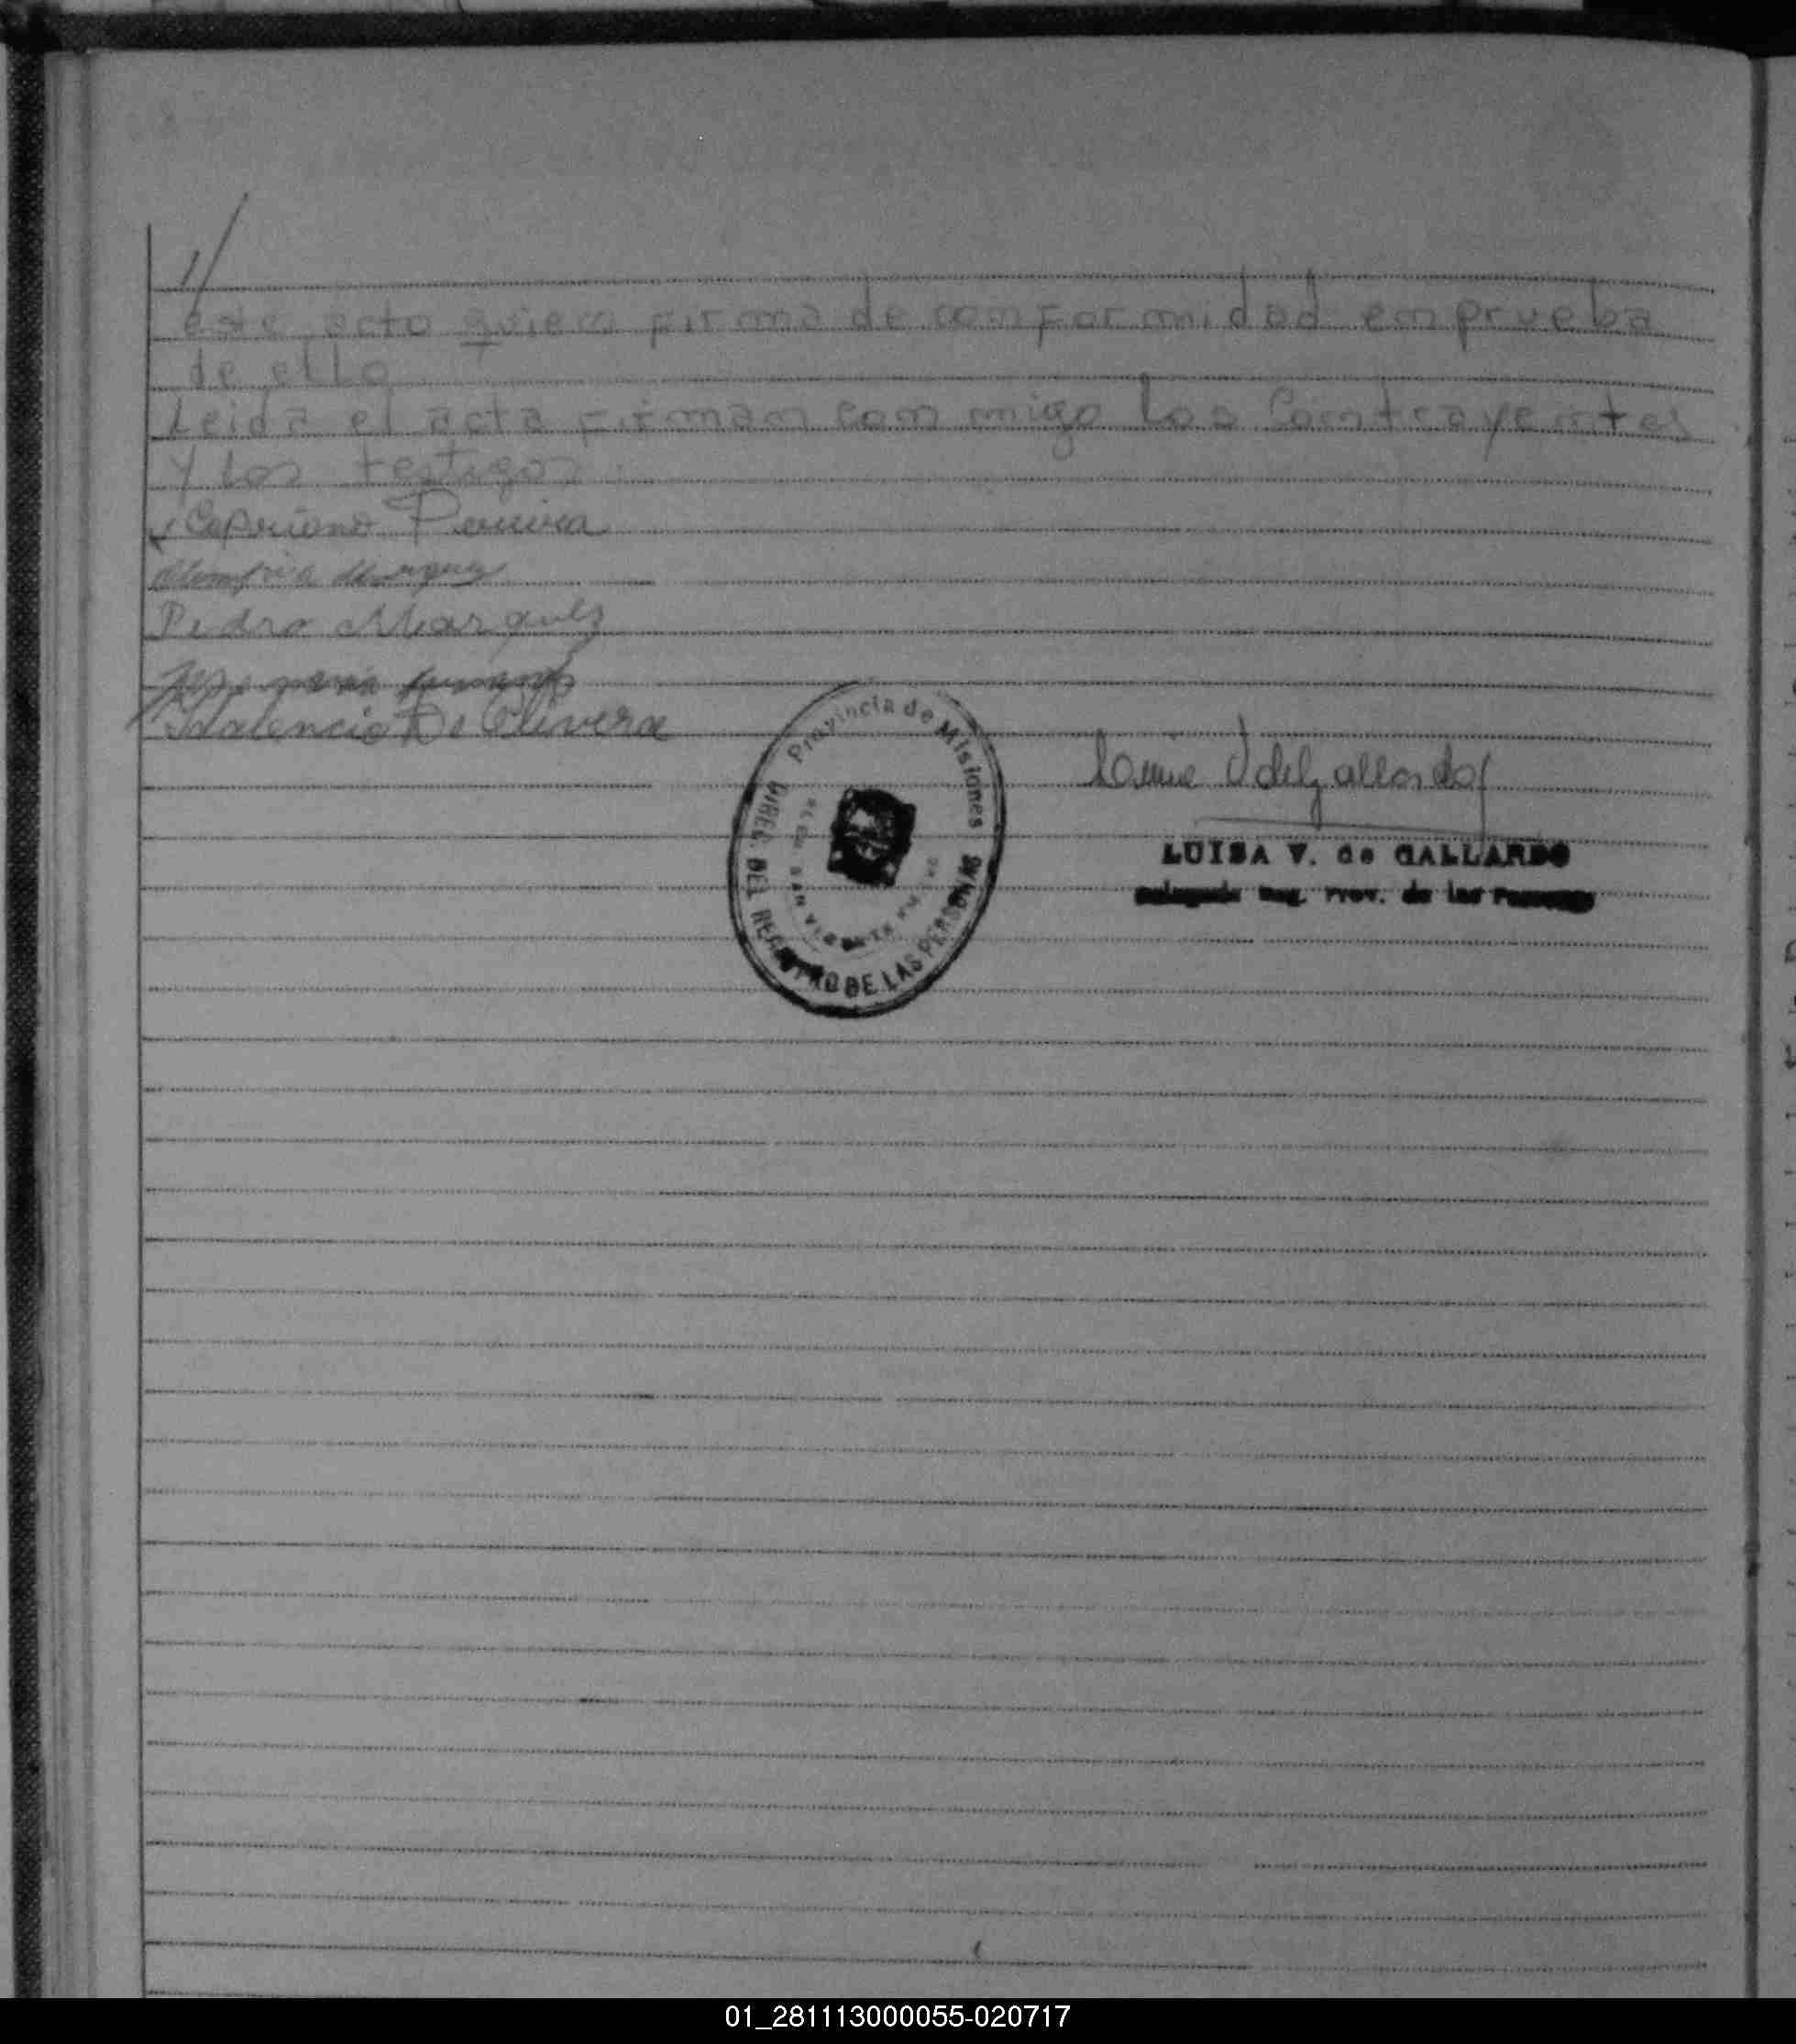 //
este acto quien firma de conformidad en prueba
de ello
Leida el acta firman conmigo los Contrayentes
y los testigos
Cipriano Pereira
Pedro Marques
De Olivera
Provincia de Misiones
DIREC. DEL REGISTRO DE LAS PERSONAS
SAN VICENTE
LUISA V. de GALLARDO
Delegada Reg. Prov. de las Personas
01_281113000055-020717